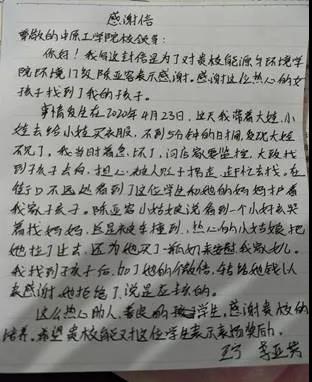 感谢信
尊敬的中原工学院校领导:
你好!我写这封信是为了对贵校能源与环境学
院环境17级陈亚容表示感谢。感谢这位热心的女
孩子找到了我的孩子。
事情发生在2020年4月23日,这天我带着大娃、小
娃去给小娃买衣服,不到5分钟的时间,发现大娃
不见了,我当时着急坏了,问店家要监控,大致找
到孩子去向,担心被人贩子拐走,赶忙去找,在
路口不远处看到了这位学生和她的妈妈护着
我家孩子。陈亚容小姑娘说看到一个小娃哭
着找妈妈,还差点被车撞到,热心的小姑娘把
她拉了过去,还为她买了一瓶奶来安慰我家女儿。
我找到孩子后,加了她的微信,转给她钱以
表感谢,她拒绝了,说是应该的。
这么热心助人、善良的孩子学生,感谢贵校的
培养。希望贵校能对这位学生表示表扬奖励。
李亚芳